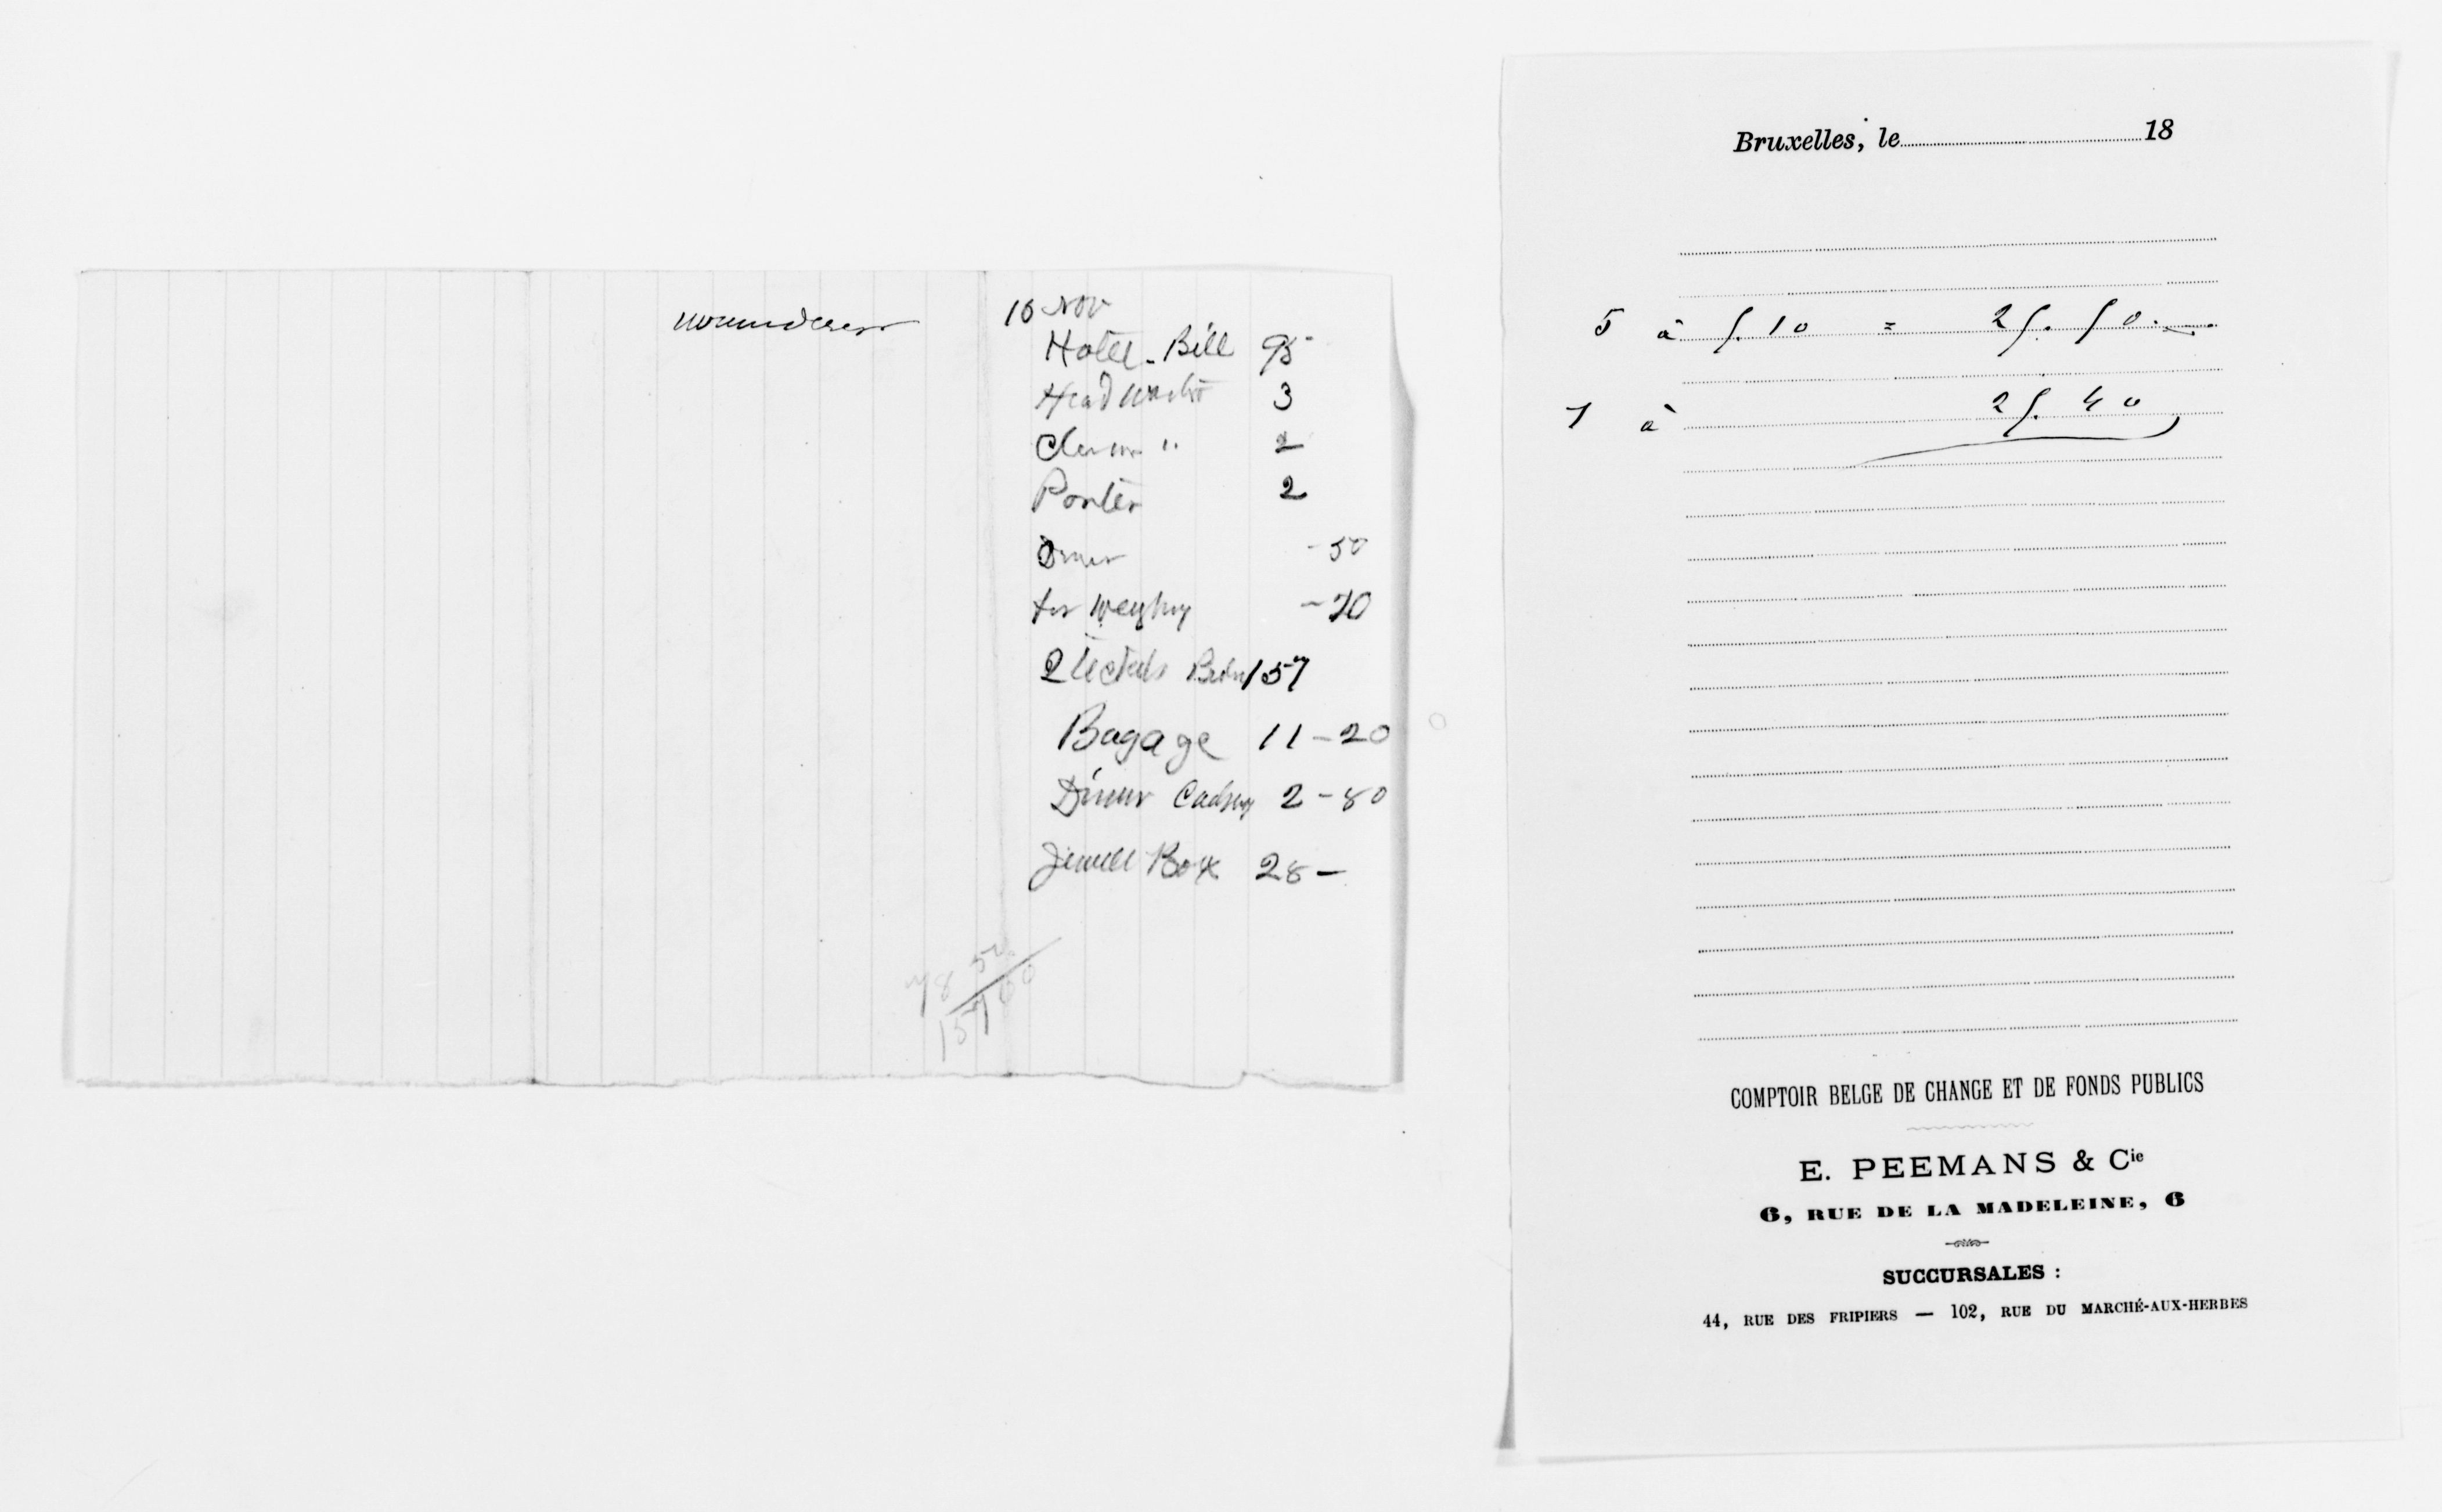 16 Nov
Hotel - Bill 95
Head waiter 3
2
Porter 2
- 50
for weighing - 20
2 tickets 157
Bagage 11 - 20
Dinner 2 - 80
Jewell Box 28 -
78 50
157 00
Bruxelles, le 18
5 à 5.10 = 25.50.
1 à 25.40
COMPTOIR BELGE DE CHANGE ET DE FONDS PUBLICS
E. PEEMANS & Cie
6, RUE DE LA MADELEINE, 6
SUCCURSALES :
44, RUE DES FRIPIERS — 102, RUE DU MARCHÉ-AUX-HERBES